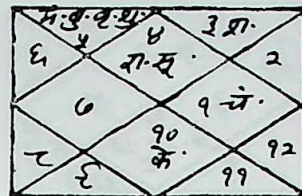 मं. बु. वृ. शु.
५
४
रा. सू.
३ श.
६
२
७
१ चं.
१०
के.
८
९
११
१२